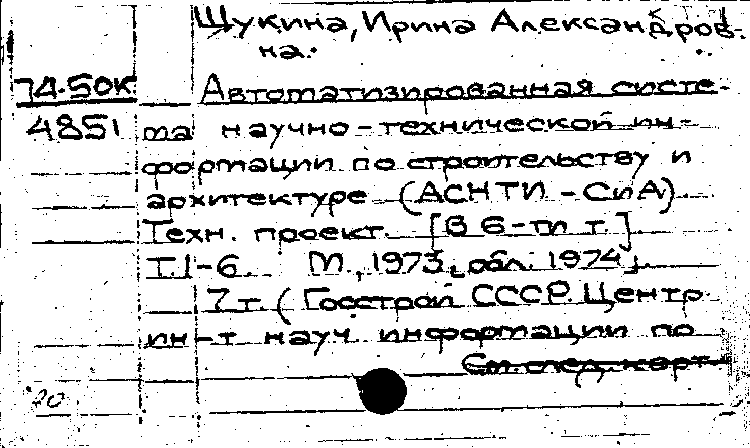 Щукина, Ирина Александров-
на.
74-50К
Автоматизированная систе-
4851 ма научно-технической ин-
формации по строительству и
архитектуре (АСНТИ-СиА).
Техн. проект. [В 6-ти т.]
Т.1-6. М., 1973, обл. 1974.
7 т. (Госстрой СССР. Центр.
ин-т науч. информации по
См. след. карт.